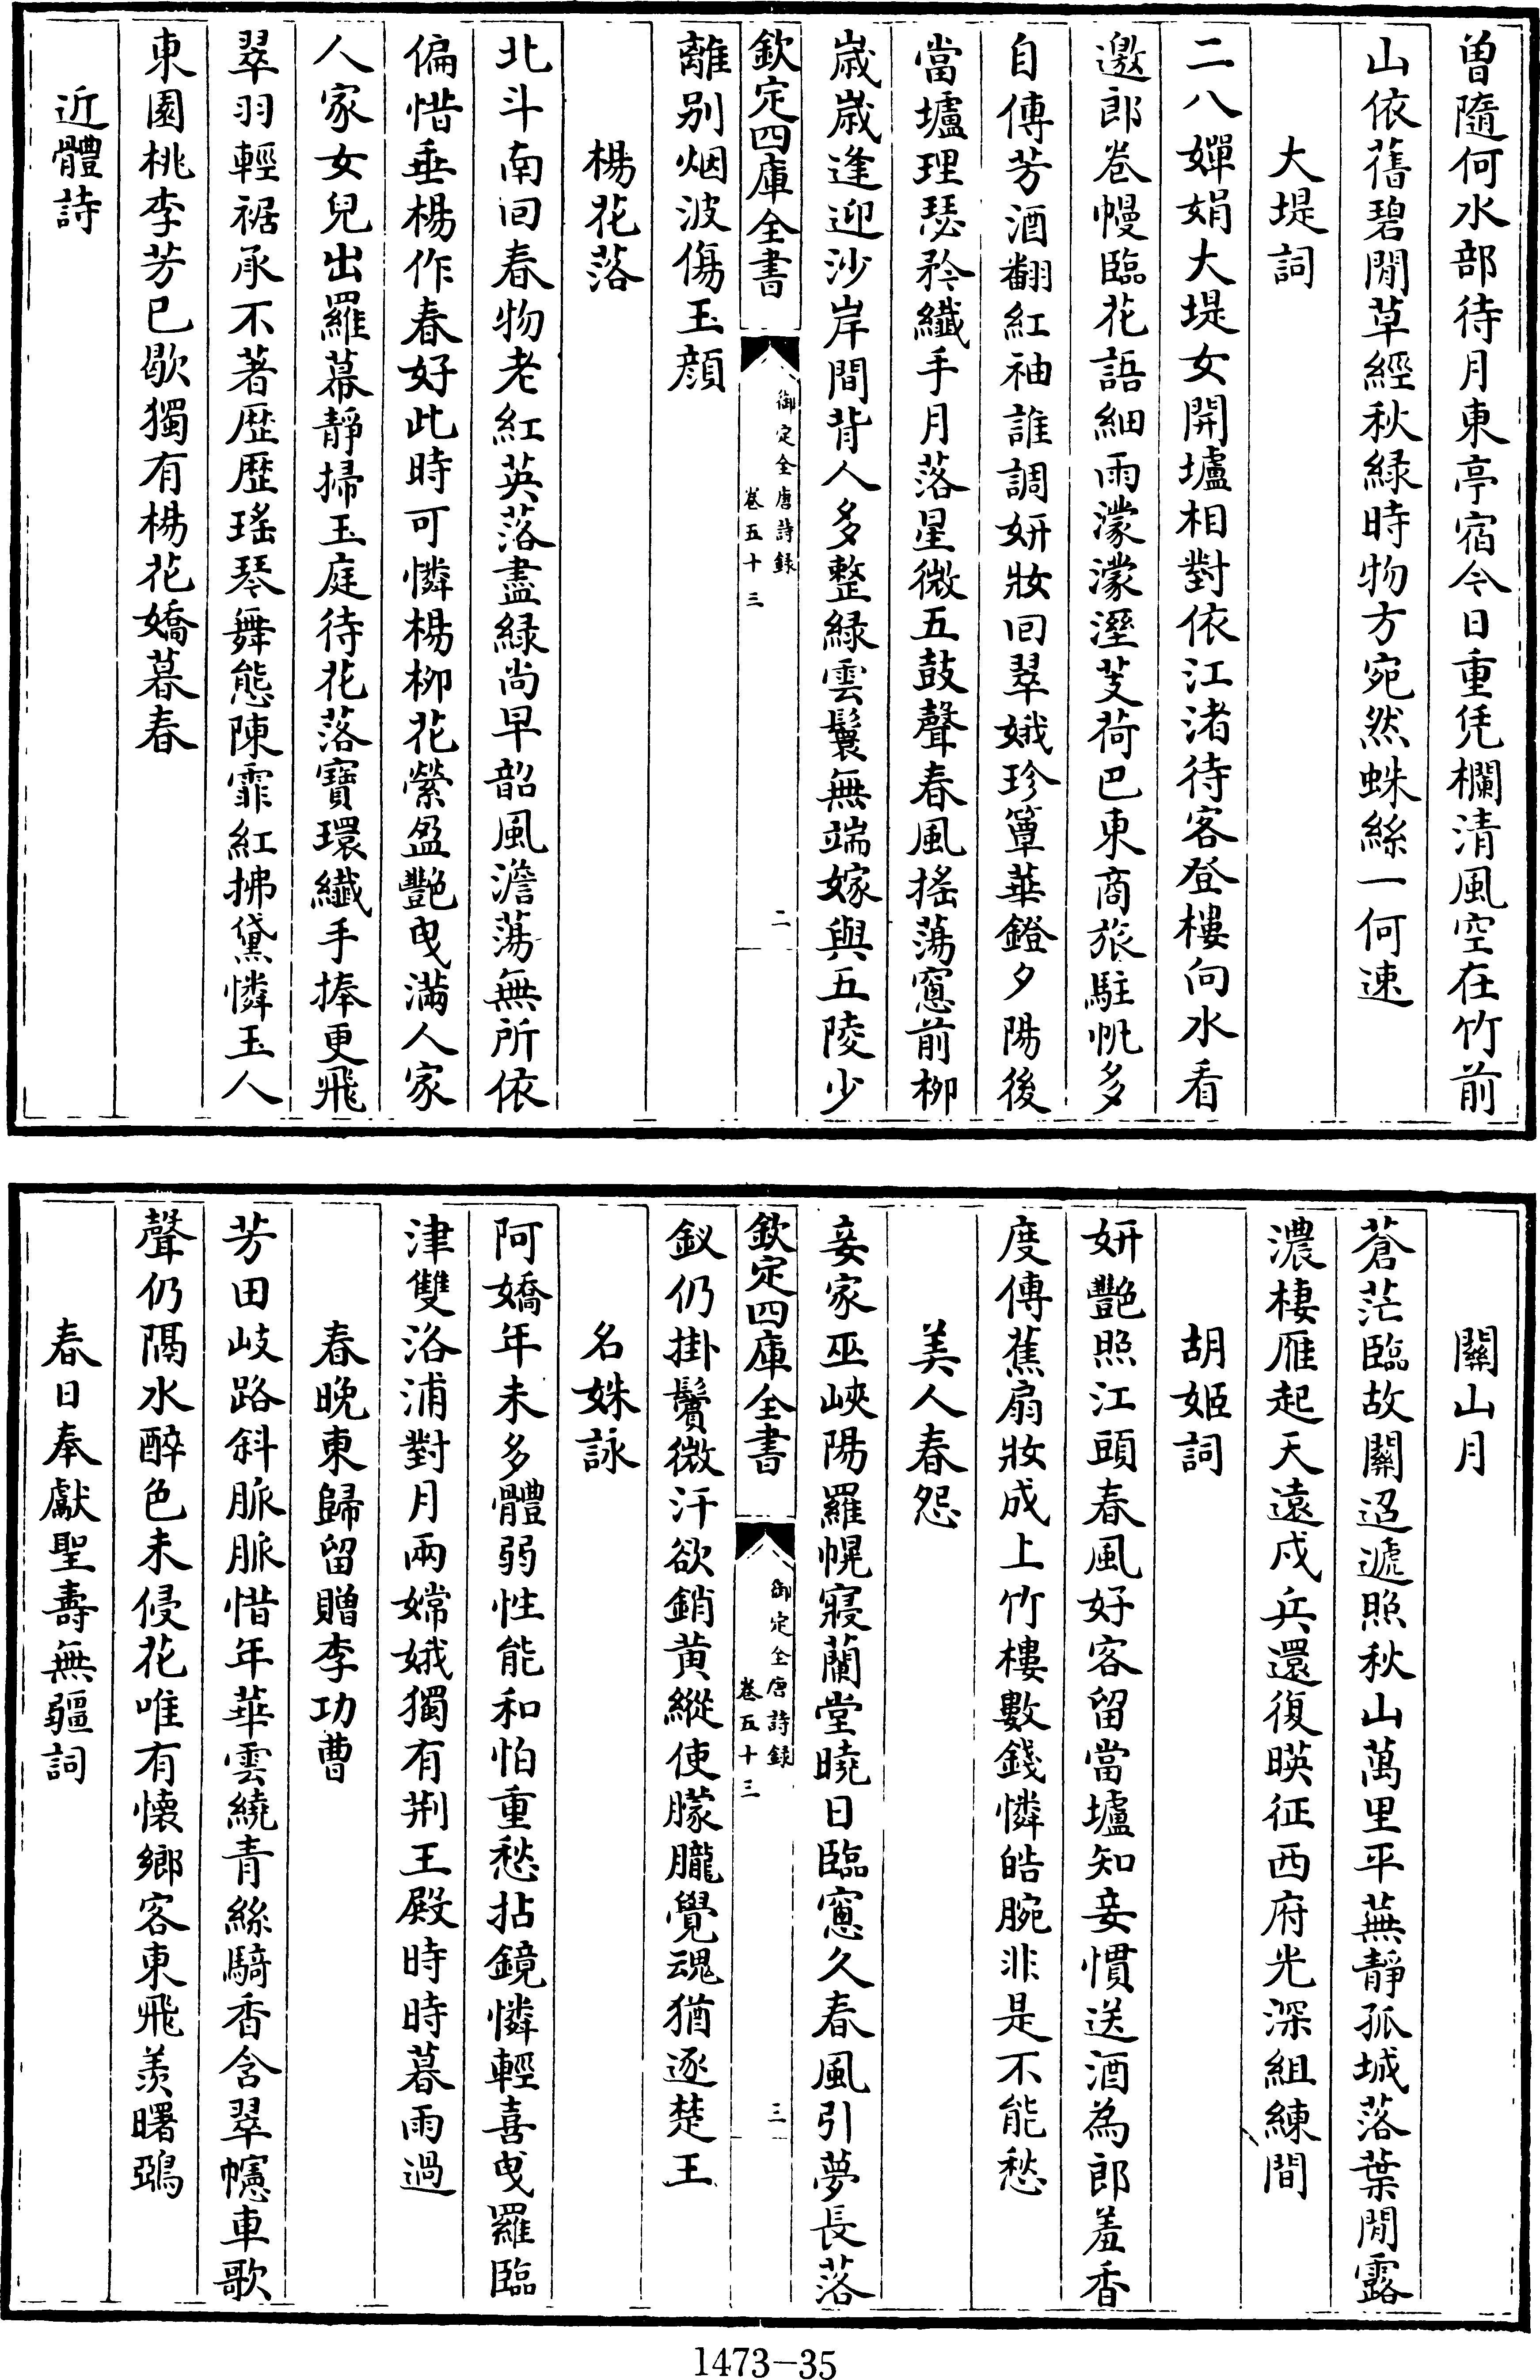 曽隨何水部待月東亭宿今日重凭欄清風空在竹前
山依舊碧閒草經秋緑時物方宛然蛛絲一何速
大堤詞
二八嬋娟大堤女開壚相對依江渚待客登樓向水看
邀郎卷幔臨花語細雨濛濛溼芰荷巴東商旅駐帆多
自傳芳酒翻紅袖誰調妍妝回翠娥珍簟華鐙夕陽後
當壚理瑟矜纖手月落星微五鼓聲春風搖蕩窻前栁
歳歳逢迎沙岸間背人多整緑雲鬟無端嫁與五陵少
欽定四庫全書
御定全唐詩録
卷五十三
二
離别烟波傷玉顔
楊花落
北斗南回春物老紅英落盡緑尚早韶風澹蕩無所依
偏惜垂楊作春好此時可憐楊栁花縈盈艷曵滿人家
人家女兒出羅幕靜掃玉庭待花落寶環纖手捧更飛
翠羽輕裾承不著歴歴瑤琴舞態陳霏紅拂黛憐玉人
東園桃李芳已歇獨有楊花嬌暮春
近體詩
關山月
蒼茫臨故關迢遞照秋山萬里平蕪靜孤城落葉閒露
濃棲雁起天遠戍兵還復暎征西府光深組練間
胡姬詞
妍艷照江頭春風好客留當壚知妾慣送酒為郎羞香
度傳蕉扇妝成上竹樓數錢憐皓腕非是不能愁
美人春怨
妾家巫峽陽羅幌寢蘭堂曉日臨窻久春風引夢長落
欽定四庫全書
御定全唐詩録
卷五十三
三
釵仍掛鬢微汗欲銷黄縱使朦朧覺魂猶逐楚王
名姝詠
阿嬌年未多體弱性能和怕重愁拈鏡憐輕喜曵羅臨
津雙洛浦對月兩嫦娥獨有荆王殿時時暮雨過
春晚東歸留贈李功曹
芳田岐路斜脈脈惜年華雲繞青絲騎香含翠幰車歌
聲仍隔水醉色未侵花唯有懷鄉客東飛羨曙鵶
春日奉獻聖壽無疆詞
1473-35